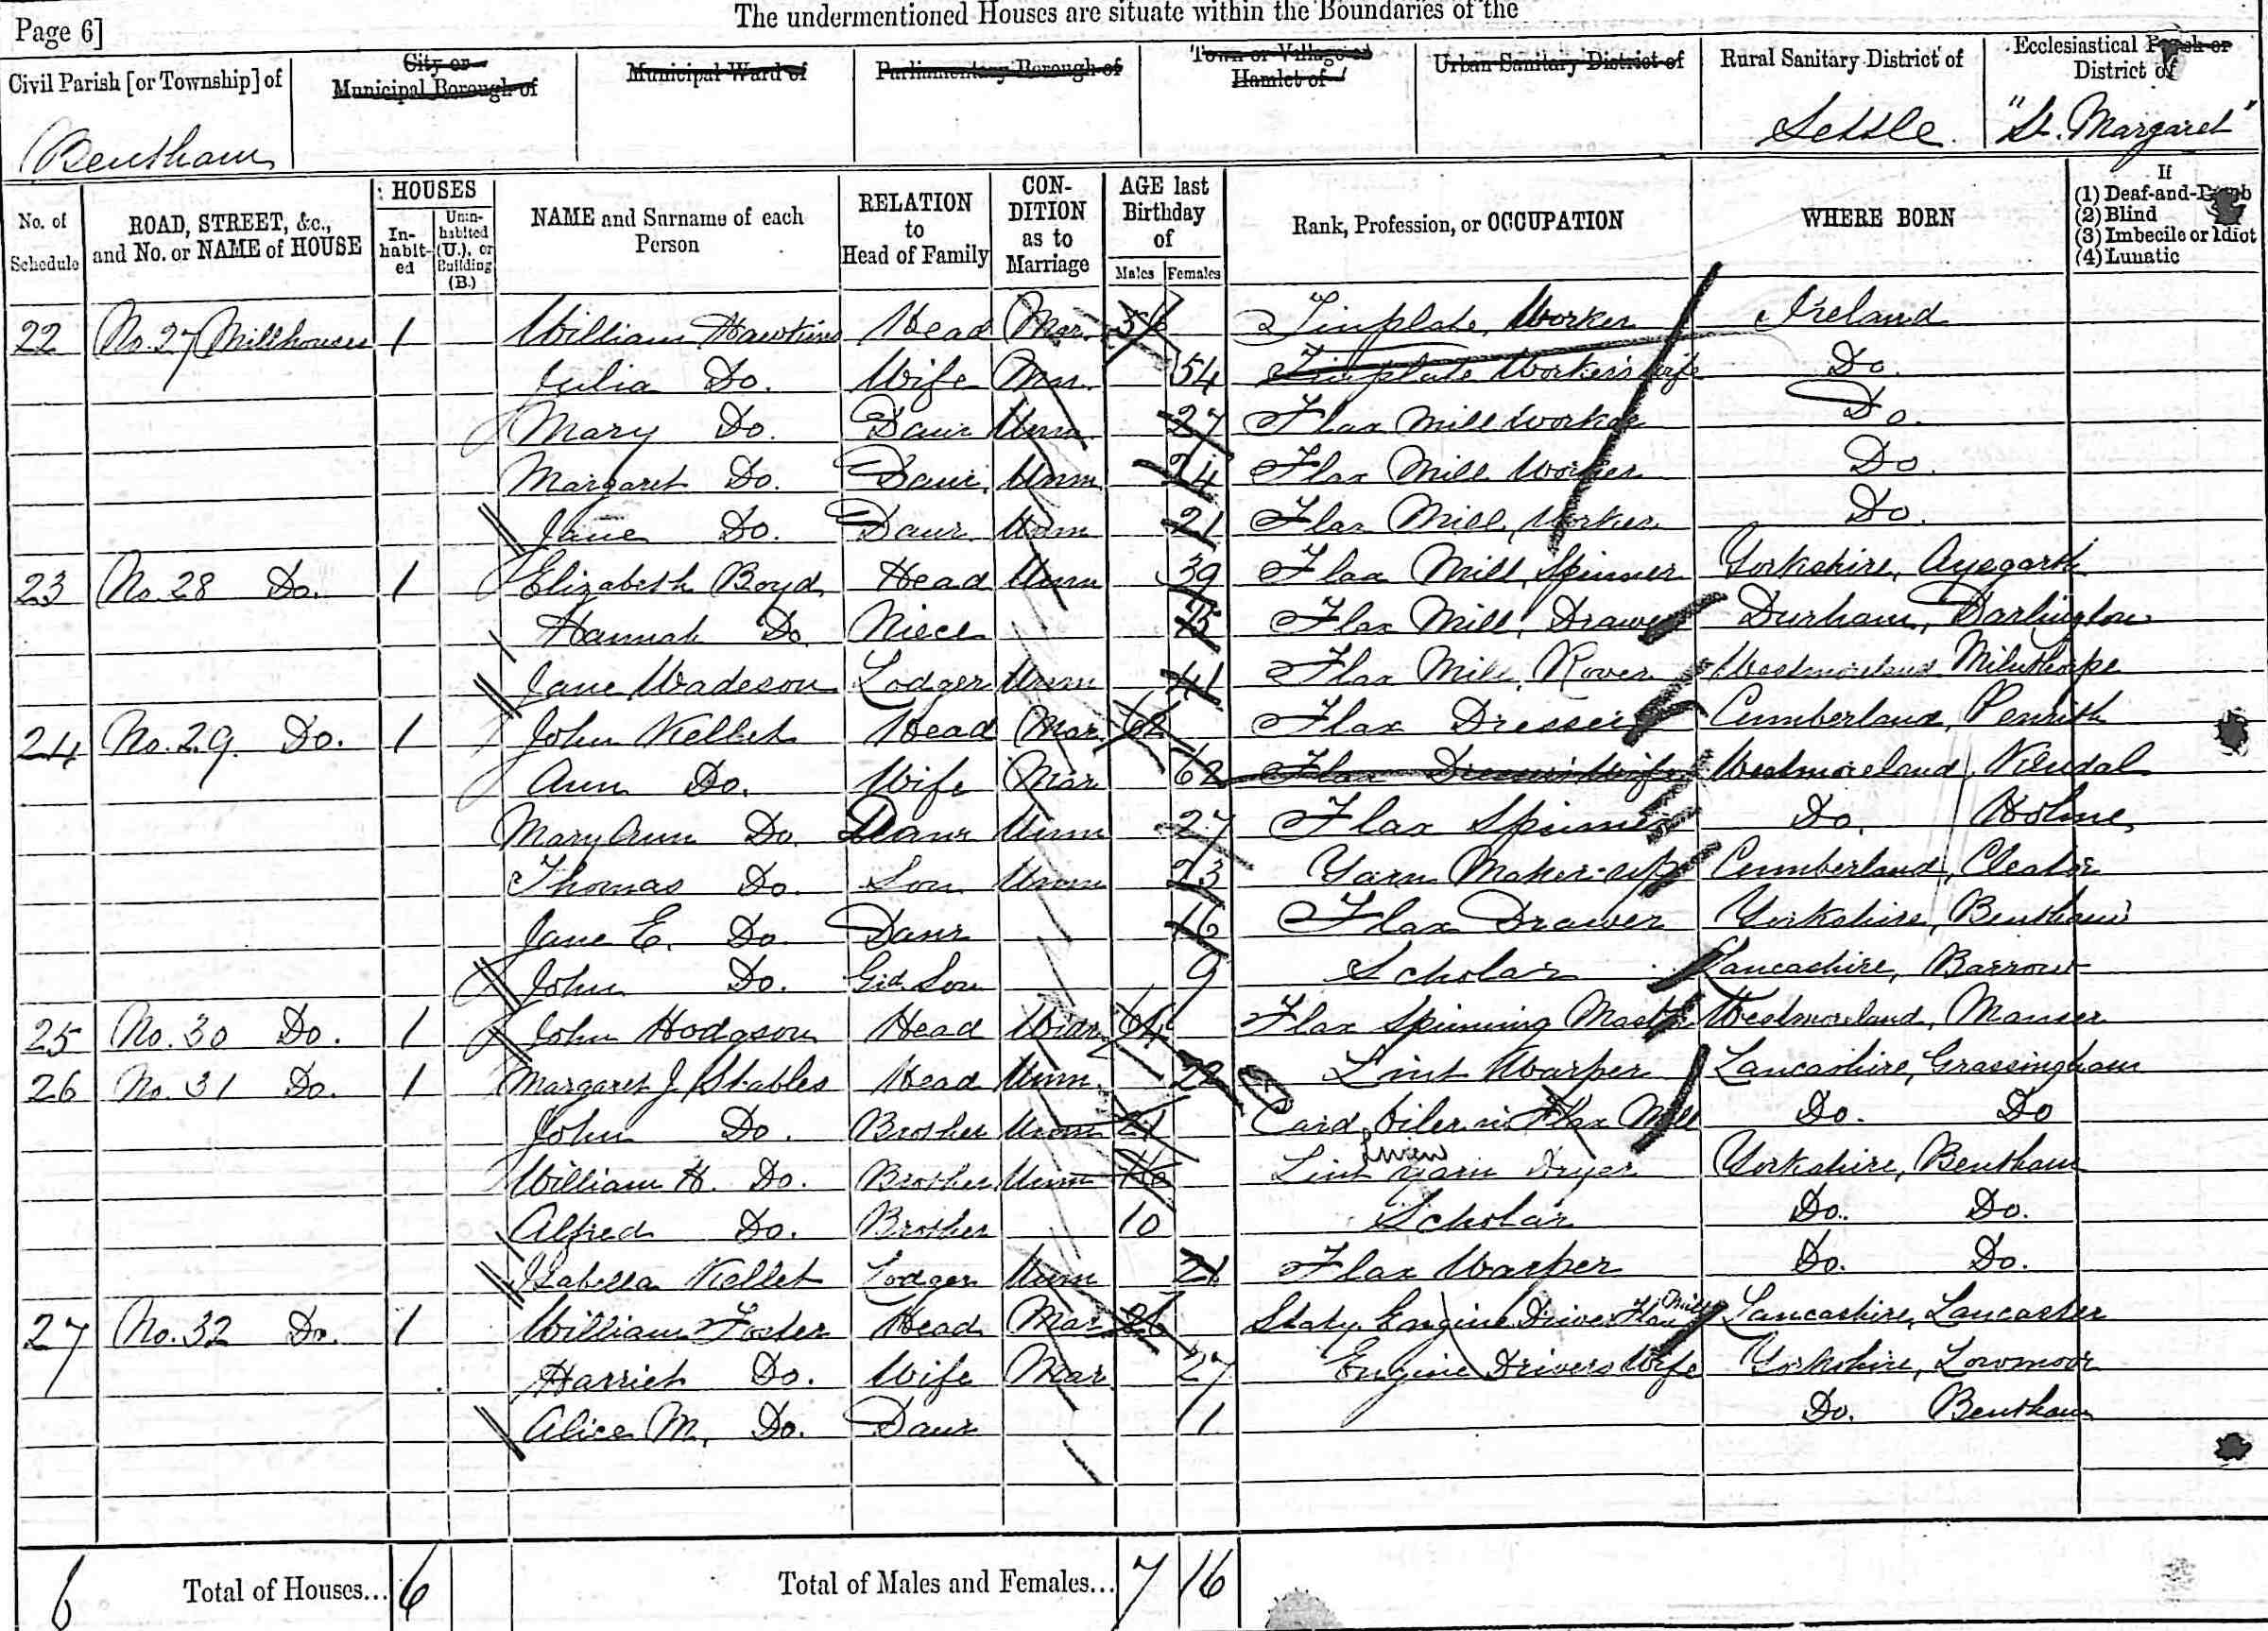 Page 6]
The undermentioned Houses are situate within the Boundaries of the
Civil Parish [or Township] of City or Municipal Borough of Municipal Ward of Parliamentary Borough of Town or Village or Hamlet of Urban Sanitary District of Rural Sanitary District of Ecclesiastical Parish or District of
Bentham Settle "St. Margaret"
No. of Schedule ROAD, STREET, &c., and No. or NAME of HOUSE HOUSES Inhabited Uninhabited (U.), or Building (B.) NAME and Surname of each Person RELATION to Head of Family CONDITION as to Marriage AGE last Birthday of Males Females Rank, Profession, or OCCUPATION WHERE BORN If (1) Deaf-and-Dumb (2) Blind (3) Imbecile or Idiot (4) Lunatic
22 No. 27 Millhouses 1 William Hawkins Head Mar. Tinplate Worker Ireland
Julia Do. Wife Mar. 54 Tinplate Worker's Wife Do.
Mary Do. Daur Unm 27 Flax Mill Worker Do.
Margaret Do. Daur. Unm 24 Flax Mill Worker Do.
Jane Do. Daur Unm 21 Flax Mill Worker Do.
23 No. 28 Do. 1 Elizabeth Boyd Head Unm 39 Flax Mill Spinner Yorkshire, Aysgarth
Hannah Do. Niece 15 Flax Mill Drawer Durham, Darlington
Jane Wadeson Lodger Unm 41 Flax Mill Rover Westmoreland Milnthorpe
24 No. 29 Do. 1 John Kellet Head Mar 62 Flax Dresser Cumberland, Penrith
Ann Do. Wife Mar 62 Flax Dresser's Wife Westmoreland, Kendal
Mary Ann Do. Daur Unm 27 Flax Spinner Do. Holme
Thomas Do. Son Unm 23 Yarn Maker-up Cumberland, Cleator
Jane E. Do. Daur 16 Flax Drawer Yorkshire, Bentham
John Do. Grd Son 9 Scholar Lancashire, Barrow
25 No. 30 Do. 1 John Hodgson Head Widr 64 Flax Spinning Master Westmoreland, Manser
26 No. 31 Do. 1 Margaret J Stables Head Unm. 22 Lint Warper Lancashire, Grassingham
John Do. Brother Unm 21 Card Oiler in Flax Mill Do. Do
William H. Do. Brother Unm 16 Lint Linen yarn Dryer Yorkshire, Bentham
Alfred Do. Brother 10 Scholar Do. Do.
Isabella Kellet Lodger Unm 21 Flax Warper Do. Do.
27 No. 32 Do. 1 William Foster Head Mar 26 Staty. Engine Driver Flax Mill Lancashire, Lancaster
Harriet Do. Wife Mar 27 Engine Drivers Wife Yorkshire, Lowmoor
Alice M. Do. Daur 1 Do. Bentham
6 Total of Houses... 6 Total of Males and Females... 7 16